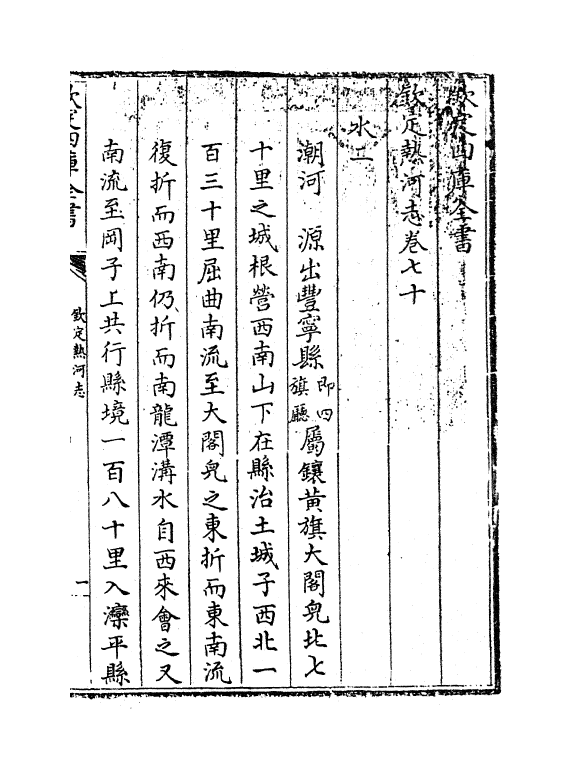 欽定四庫全書
欽定熱河志卷七十
水二
潮河　源出豐寧縣即四旗廳屬鑲黃旗大閣兒北七
十里之城根營西南山下在縣治土城子西北一
百三十里屈曲南流至大閣兒之東折而東南流
復折而西南仍折而南龍潭溝水自西來會之又
南流至岡子上共行縣境一百八十里入灤平縣
欽定四庫全書
欽定熱河志
一